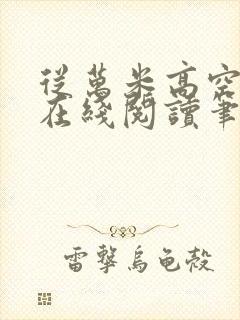 從萬米高空
在綫閱讀筆
雷擊烏龜殼